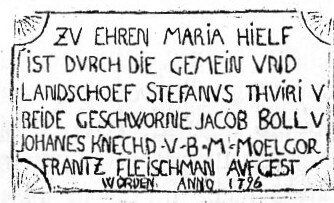 ZV EHREN MARIA HIELF
IST DVRCH DIE GEMEIN VND
LANDSCHOEF STEFANVS THVIRI V
BEIDE GESCHWORNE JACOB BOLL V
JOHANES KNECHD · V · B · M · MOELGOR
FRANTZ FLEISCHMAN AVFGEST
WORDEN ANNO 1796